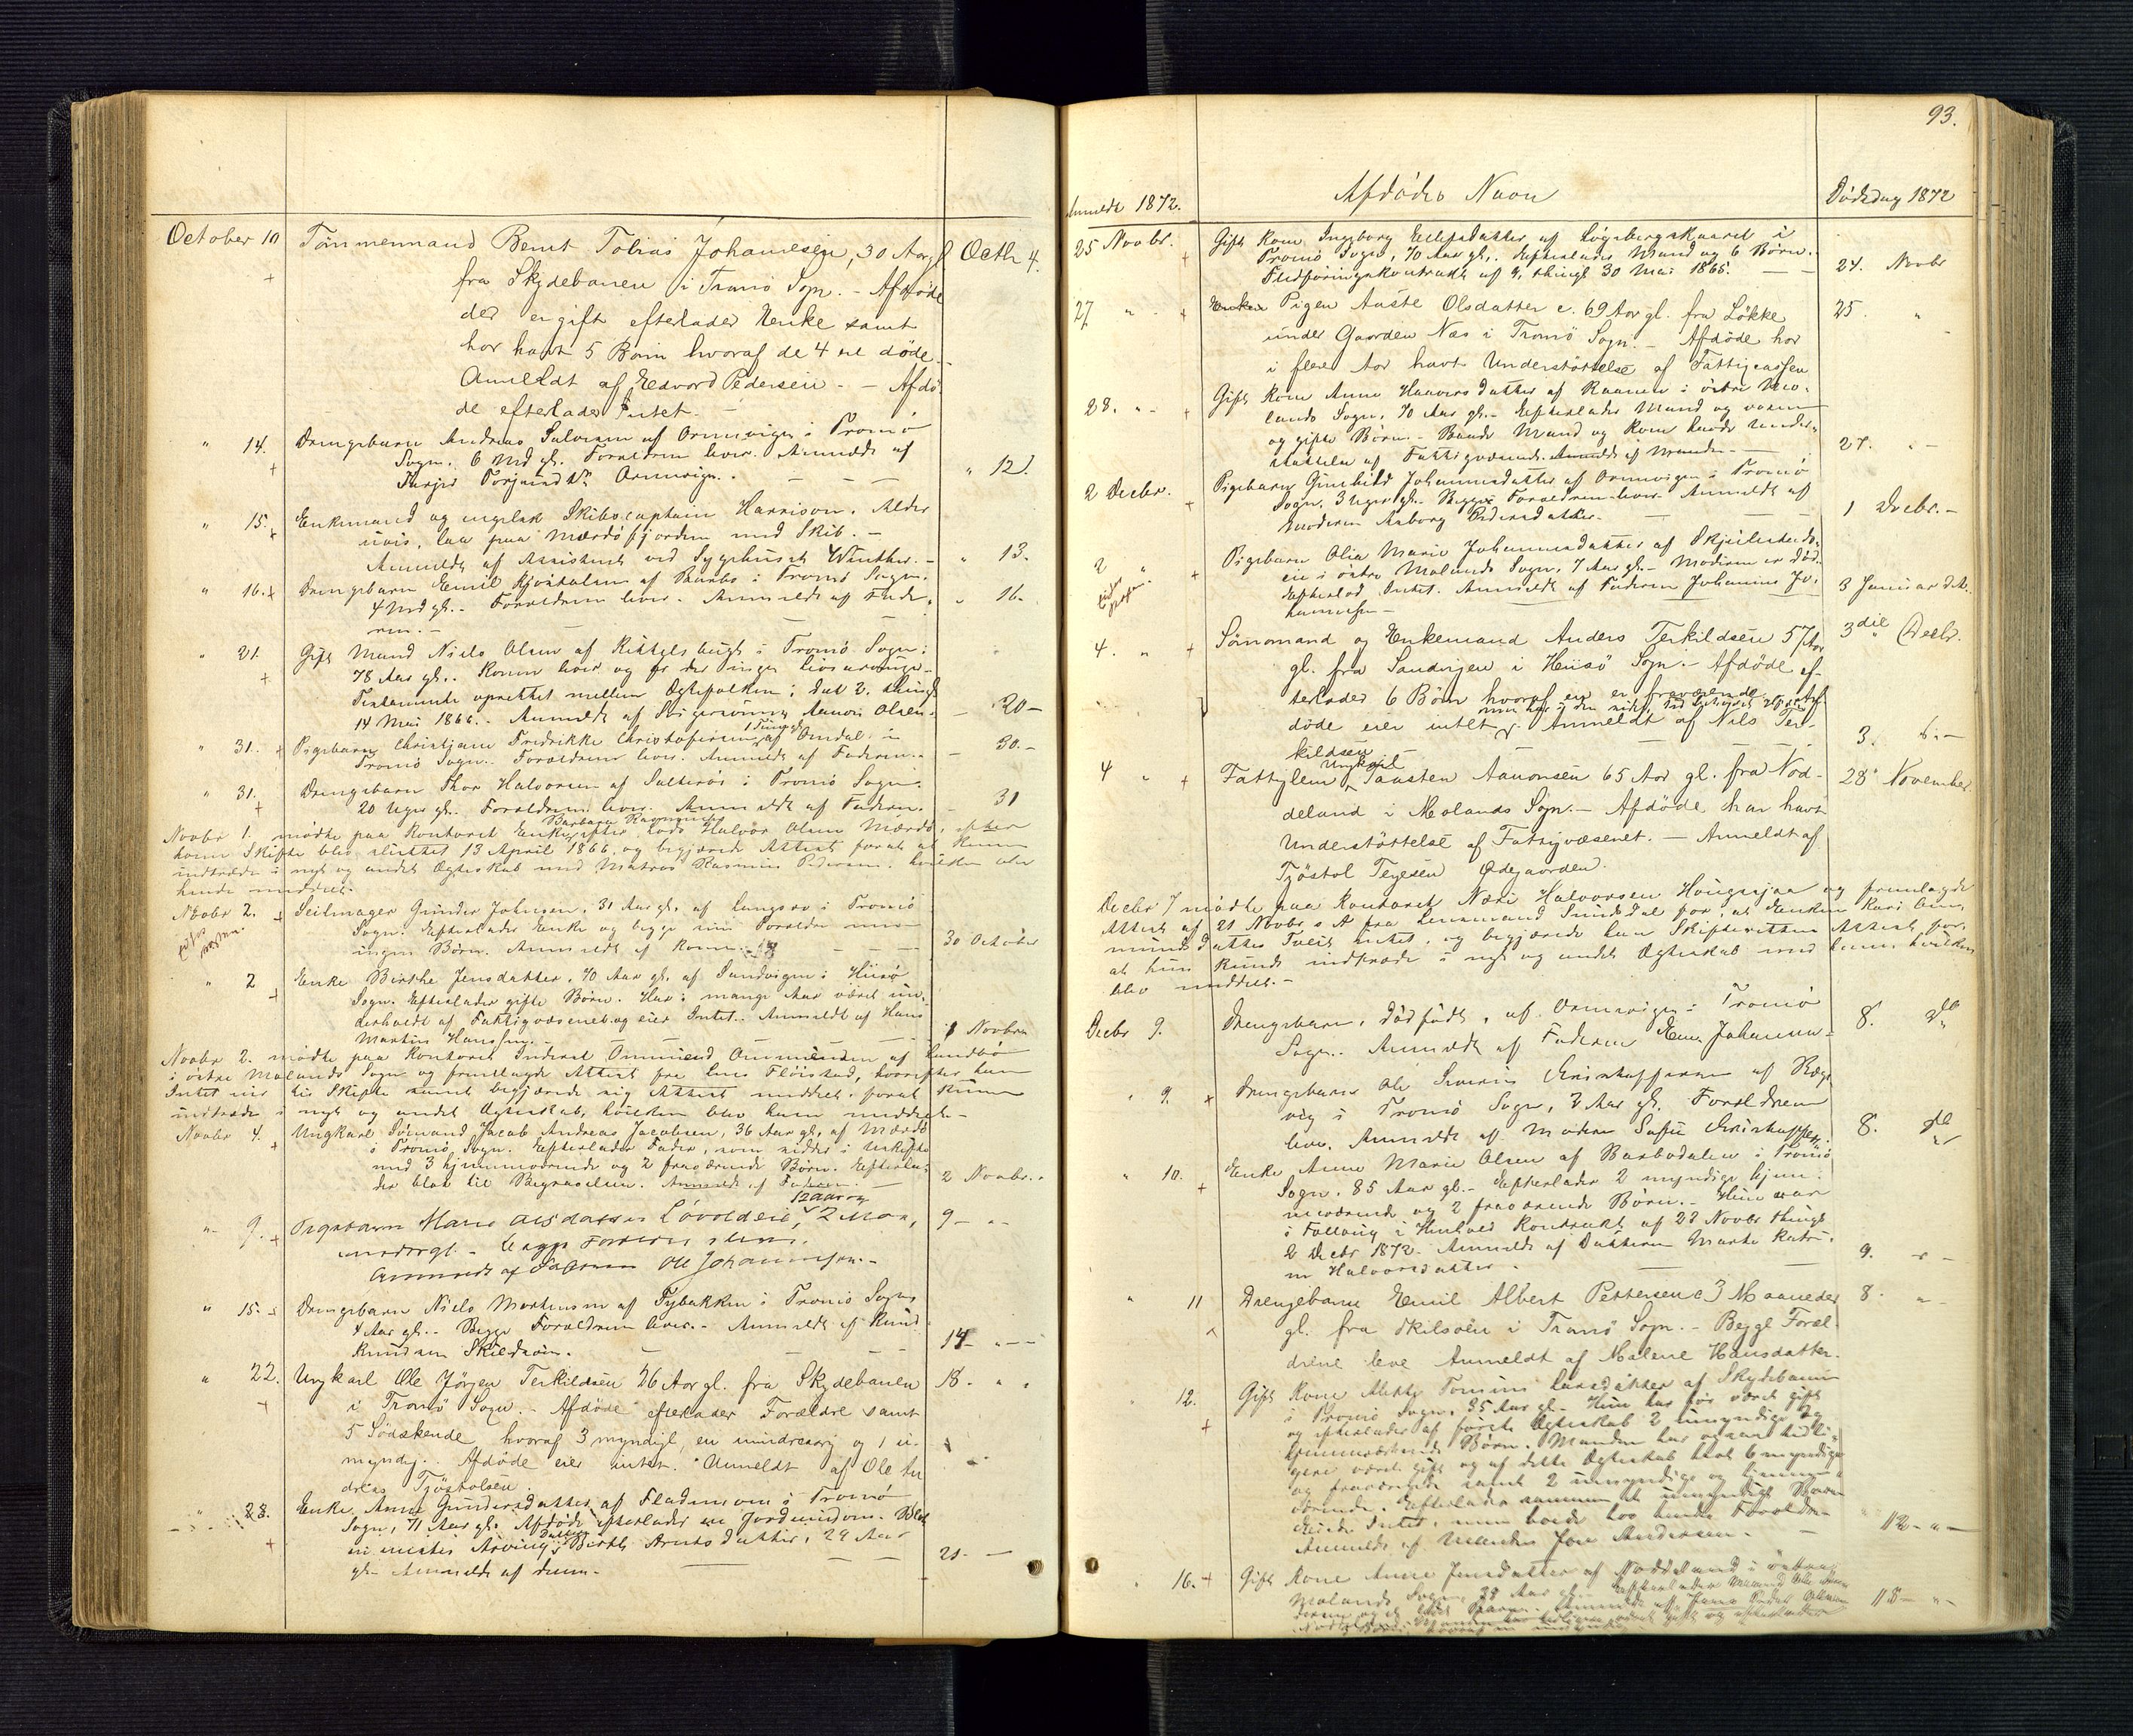 October 10 Tömmermand Bernt Tobias Johannesen, 30 Aar gl Octb 4.
fra Skydebanen i Tromö Sogn. - Afdöde
der er gift efterlader Enke samt
har havt 5 Börn hvoraf de 4 ere döde.
Anmeldt af Edvard Pedersen. - Afdö-
de efterlader Intet. -
" 14. Drengebarn Andreas Salvesen af Ormevigen i Tromö
Sogn. 6 Md gl. Forældrene lever. Anmeldt af
Terjer Torjusen Ormevigen. " 12.
" 15. Enkemand og engelsk Skibscaptain Harrison. Alder
uvis, laa paa Mærdöfjorden med Skib. -
Anmeldt af Assistent ved Sygehuset Winther. - " 13.
" 16. Drengebarn Emil af Barbo i Tromö Sogn.
4 Md gl. - Forældrene lever. Anmeldt af Fade- " 16.
ren. -
" 21. Gift Mand Niels Olsen af Kittelsbugt i Tromö Sogn.
78 Aar gl. Konen lever og er der ingen Livsarvinge.
Testamente oprettet mellem Ægtefolkene, dat 2. thingl
14 Mai 1866. - Anmeldt af Svigersönnen Aanon Olsen. - 20 -
" 31. Pigebarn Christiane Fredrikke Christofersen af Omdal in
Tromö Sogn. Forældrene lever. Anmeldt af Faderen. - 30. -
" 31. Drengebarn Thor Halvorsen af Salterös i Tromö Sogn.
20 Uger gl. Forældrene lever. Anmeldt af Faderen. - 31
Barbara Rasmussen
Novbr 1. mödte paa Kontoret Enke efter Lods Halvor Olsen Mærdö, efter
hvem Skifte blev sluttet 13 April 1866, og begjærede Attest forat at kunne
indtræde i nyt og andet Ægteskab med Matros Rasmus Pedersen, hvilken blev
hende meddelt.
Novbr 2. Seilmager Gunder Johnsen, 31 Aar gl. af Langsæ i Tromö
Sogn. Efterlader Enke og begge sine Forældre men
ingen Börn. Anmeldt af Konen. 30 October
" 2 Enke Birthe Jensdatter, 70 Aar gl. af Sandvigen i Hisö
Sogn. Efterlader gifte Börn. Har i mange Aar været un-
derholdt af Fattigvæsenet og eier Intet. Anmeldt af Hans
Martin Hansen. - 1 Novbr
Novbr 2. mödte paa Kontoret Inderst Ommund Ommundsen af Landbö
i östre Molands Sogn og fremlagde Attest fra Lens Flöistad, hvorefter han
Intet eier til Skifte samt begjærede sig Attest meddelt forat kunne
indtræde i nyt og andet Ægteskab, hvilken blev ham meddelt -
Novbr 4. Ungkarl Sömand Jacob Andreas Jacobsen, 36 Aar gl. af Mærdö
i Tromö Sogn. Efterlader Fader, som sidder i Uskifte
med 3 hjemmeværende og 2 fraværende Börn. Efterla-
der blot til Begravelsen. Anmeldt af Faderen. - 2 Novbr.
12 Aar og
" 9. Pigebarn Marie Olsdatter Lövoldeie, 2 Maa- 9 - "
neder gl. - begge Forældre
Anmeldt af Faderen Ole Johannessen. -
" 15. Drengebarn Niels Mortensen af Fybakken i Tromö Sogn
4 Aar gl. - Begge Forældrene lever. - Anmeldt af Knud
Knudsen Skilsöen. 14 - " -
" 22. Ungkarl Ole Jörgen Terkildsen 26 Aar gl. fra Skydebanen 18. " "
i Tromö Sogn. - Afdöde efterlader Forældre samt
5 Södskende hvoraf 3 myndige, en mindreaarig og 1 u-
myndig. Afdöde eier intet. Anmeldt af Ole An
dreas Tjöstolsen.
" 23. Enke Anne Gundersdatter af Fladen i Tromö
Sogn, 71 Aar gl. Afdöde efterlader en Jordeiendom.
en eneste Arving, Datter Birthe Arntsdatter, 29 Aar
gl. Anmeldt af denne. 21. -
93.
Anmeldt 1872. Afdödes Navn Dödsdag 1872
25 Novbr. Gift Kone Ingeborg Ellefsdatter af Lögebergskaaret i
Tromö Sogn, 70 Aar gl. Efterlader Mand og 6 Börn.
Födföringskontrakt af 9, thingl 30 Mai 1865. - 24. Novbr
27 " - Enken Pigen Aaste Olsdatter c. 69 Aar gl. fra Lökke 25. "
under Gaarden Næs i Tromö Sogn. - Afdöde har
i flere Aar havt Understöttelse af Fattigcassen
28. " - Gift Kone Anne Haavorsdatter af Raanes i östre Mo-
lands Sogn. 70 Aar gl. - Efterlader Mand og voxne
og gifte Börn. - Baade Mand og Kone havde Under-
stöttelse af Fattigvæsenet. Anmeldt af Manden. - 27. " -
2 Decbr. Pigebarn Gunhild Johannesdatter af Ormevigen i Tromö
Sogn, 3 Uger gl. Begge Forældrene lever. Anmeldt af
Moderen Aaborg Pedersdatter. 1 Decbr. -
2 " Pigebarn Olia Marie Johannesdatter af Skjulestads-
eie i östre Molands Sogn, 7 Aar gl. - Moderen er död.
Efterlod Intet. Anmeldt af Faderen Johannes Jo-
hannessen - 3 Januar
4. " Sömand og Enkemand Anders Terkildsen 57 Aar 3die Decbr.
gl. fra Sandvigen i Hisö Sogn. - Afdöde ef-
terlader 6 Börn hvoraf en er fraværende. Af-
döde eier intet Anmeldt af Nils Ter-
kildsen 3. " -
4 " Fattiglem Ungkarl Taasten Aanonsen 65 Aar gl. fra Nod- 28 November
deland i Molands Sogn. - Afdöde har havt
Understöttelse af Fattigvæsenet. - Anmeldt af
Tjöstol Terjesen Ödegaarden.
Decbr 7 mödte paa Kontoret Næri Halvorsen Hougesjaa og fremlagde
Attest af 21 Novbr s A fra Lensmand Sundsdal for, at Enken Kari Aa-
mundsdatter Tveit intet, og begjærede han Skifterettens Attest for,
at hun kunde indtræde i nyt og andet Ægteskab med ham, hvilken
blev meddelt. -
Decbr 9. Drengebarn, dödfödt, af Ormevigen i Tromö
Sogn. Anmeldt af Faderen Johannes- 8. do
" 9. Drengebarn Ole Severin Kristoffersen af Ræge-
vig i Tromö Sogn, 2 Aar gl. Forældrene
lever. Anmeldt af Moderen Sofie Kristoffersen. 8. do
" 10. Enke Anne Marie Olsen af Barbodalen i Tromö
Sogn. 85 Aar gl. - Efterlader 2 myndige hjem-
meværende og 2 fraværende Börn. - Hun var
i Fölloug i Henhold Kontrakt af 23 Novbr thingl
2 Decbr 1872. Anmeldt af Datteren Marte Katri-
ne Halvorsdatter. 9. - " -
" 11 Drengebarn Emil Albert Pettersen c 3 Maaneder 8. " -
gl. fra Skilsöen i Tromö Sogn. - Begge Foræl-
drene leve Anmeldt af Malene Hansdatter.
" 12. Gift Kone Mette Tomine Larsdatter af Skydebanen
i Tromö Sogn. 35 Aar gl. - Hun har för været gift
og efterlader af förste Ægteskab 2 umyndige og
hjemmeværende Börn. Manden har ogsaa tidli-
gere været gift og af dette Ægteskab havt 6 myndige
og fraværende samt 2 umyndige og hjemme-
værende. Efterlader sammen umyndige
Eiede Intet, men boede hos hendes Forældre.
Anmeldt af Manden Jon Andersen. - 12 - " -
" 16. Gift Kone Anne Jensdatter af Noddeland i östre
Molands Sogn, 38 Aar gl. - Efterlader Mand Ole
15 - " -